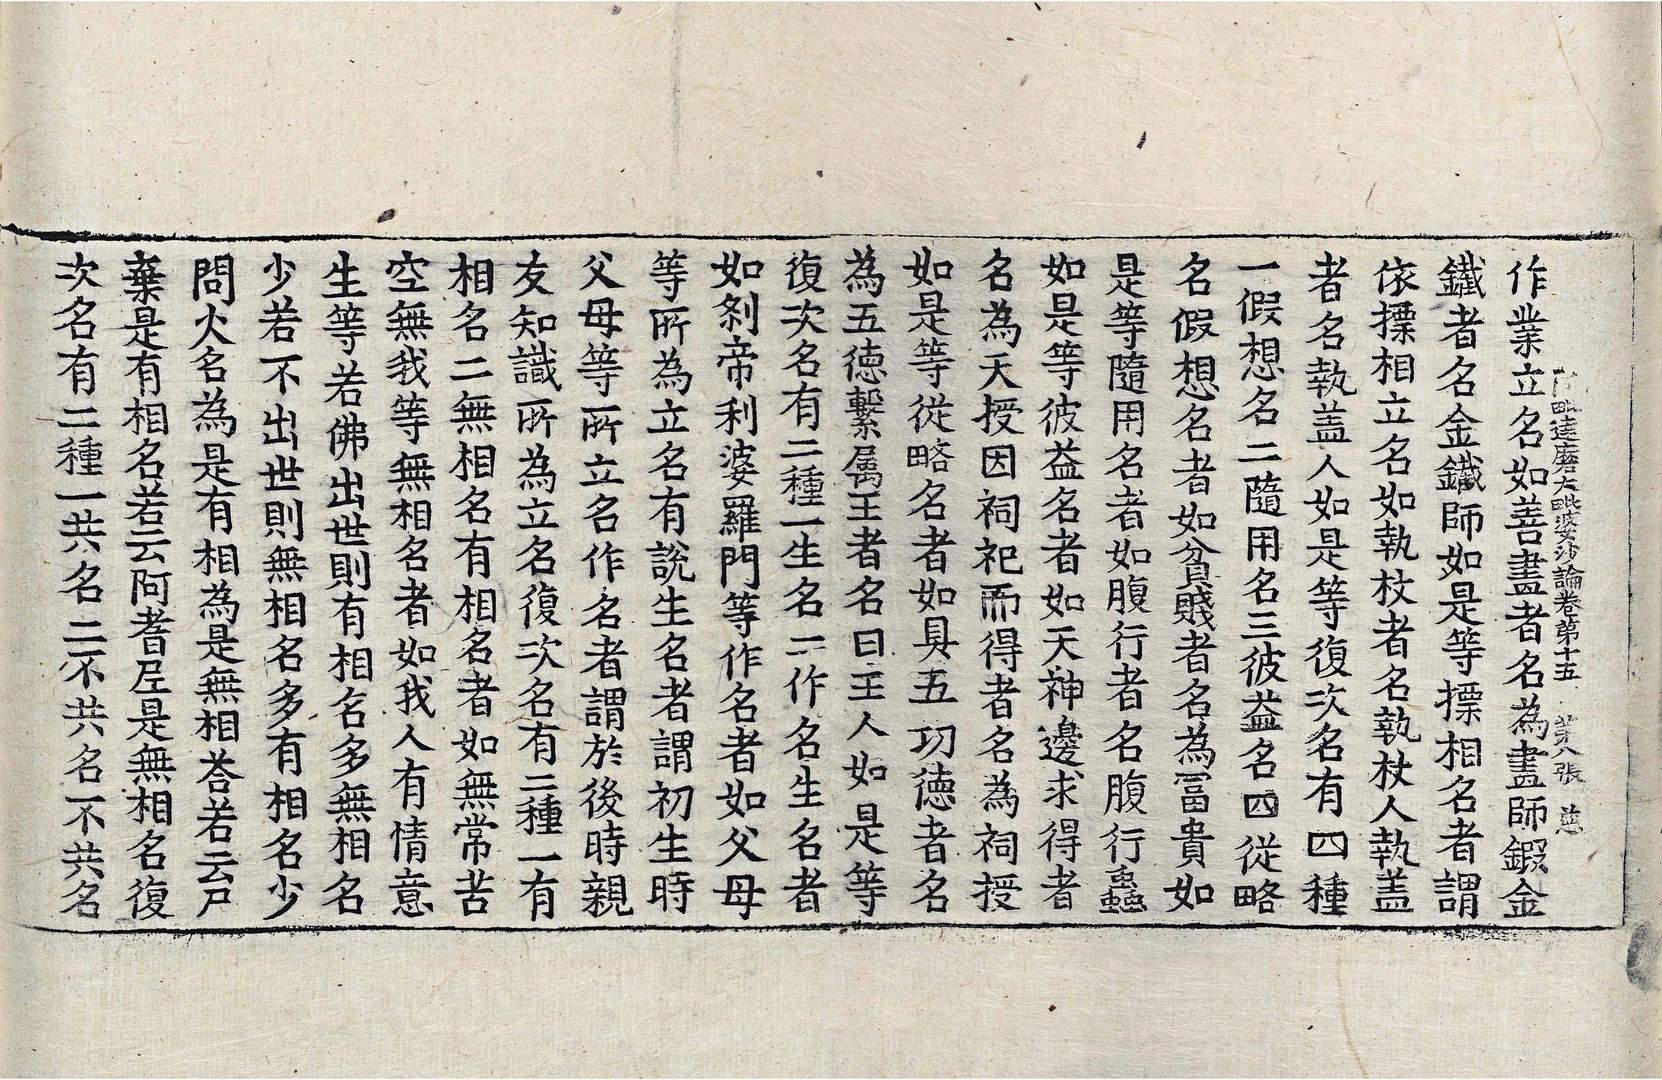 阿毗達磨大毗婆沙論卷第十五 第八張 慈
作業立名如善畫者名為畫師鍜金
鐵者名金鐵師如是等摽相名者謂
依摽相立名如執杖者名執杖人執盖
者名執盖人如是等復次名有四種
一假想名二隨用名三彼益名四從略
名假想名者如貧賤者名為冨貴如
是等隨用名者如腹行者名腹行蟲
如是等彼益名者如天神邊求得者
名為天授因祠祀而得者名為祠授
如是等從略名者如具五功德者名
為五德繫属王者名曰王人如是等
復次名有二種一生名二作名生名者
如刹帝利婆羅門等作名者如父母
等所為立名有說生名者謂初生時
父母等所立名作名者謂於後時親
友知識所為立名復次名有二種一有
相名二無相名有相名者如無常苦
空無我等無相名者如我人有情意
生等若佛出世則有相名多無相名
少若不出世則無相名多有相名少
問火名為是有相為是無相荅若云尸
棄是有相名若云阿耆尼是無相名復
次名有二種一共名二不共名不共名